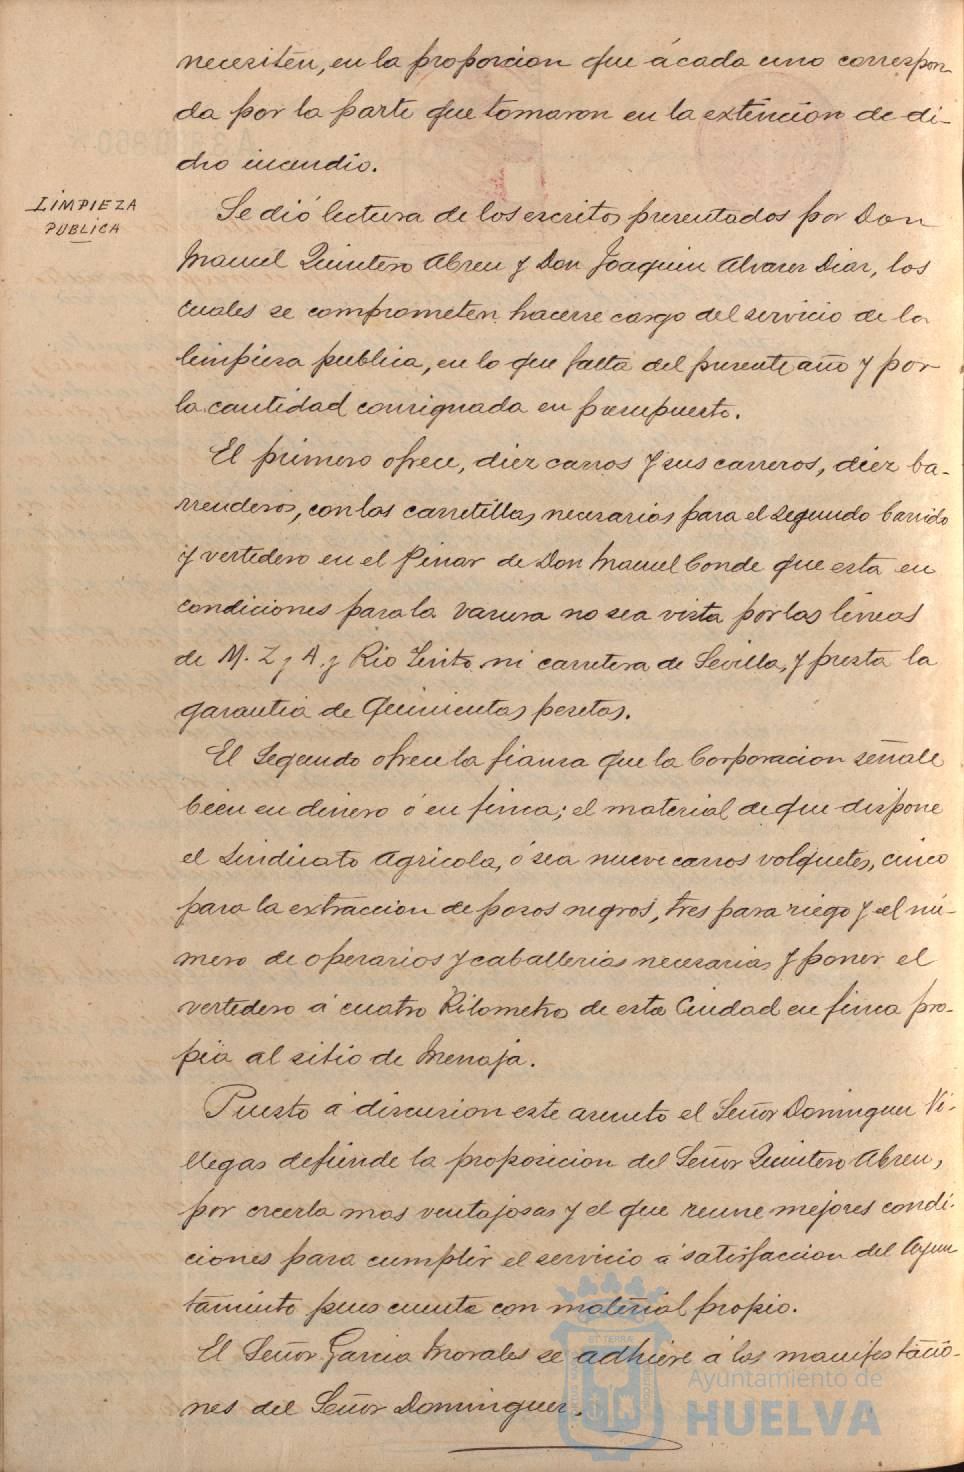 necesiten, en la proporcion que á cada uno correspon-
da por la parte que tomaron en la extincion de di-
cho incendio.
LIMPIEZA
PUBLICA
Se dió lectura de los escritos presentados por Don
Manuel Quintero Abreu y Don Joaquin Alvarez Diaz, los
cuales se comprometen hacerse cargo del servicio de la
limpieza publica, en lo que falta del presente año y por
la cantidad consignada en presupuesto.
El primero ofrece, diez carros y sus carreros, diez ba-
rrenderos, con las carretillas necesarias para el segundo barrido
y vertedero en el Pinar de Don Manuel Conde que esta en
condiciones para la basura no sea vista por las lineas
de M. Z y A. y Rio Tinto ni carretera de Sevilla, y presta la
garantia de quinientas pesetas.
El segundo ofrece la fianza que la Corporacion señale
bien en dinero ó en finca; el material de que dispone
el Sindicato Agricola, ó sea nueve carros volquetes, cinco
para la extraccion de pozos negros, tres para riego y el nú-
mero de operarios y caballerias necesarias y poner el
vertedero á cuatro Kilometros de esta Ciudad en finca pro-
pia al sitio de Menaja.
Puesto á discusion este asunto el Señor Dominguez Vi-
llegas defiende la proposicion del Señor Quintero Abreu,
por creerla mas ventajosas y el que reune mejores condi-
ciones para cumplir el servicio á satisfaccion del Ayun
tamiento pues cuenta con material propio.
El Señor Garcia Morales se adhiere á las manifestacio-
nes del Señor Dominguez.
Ayuntamiento de
HUELVA